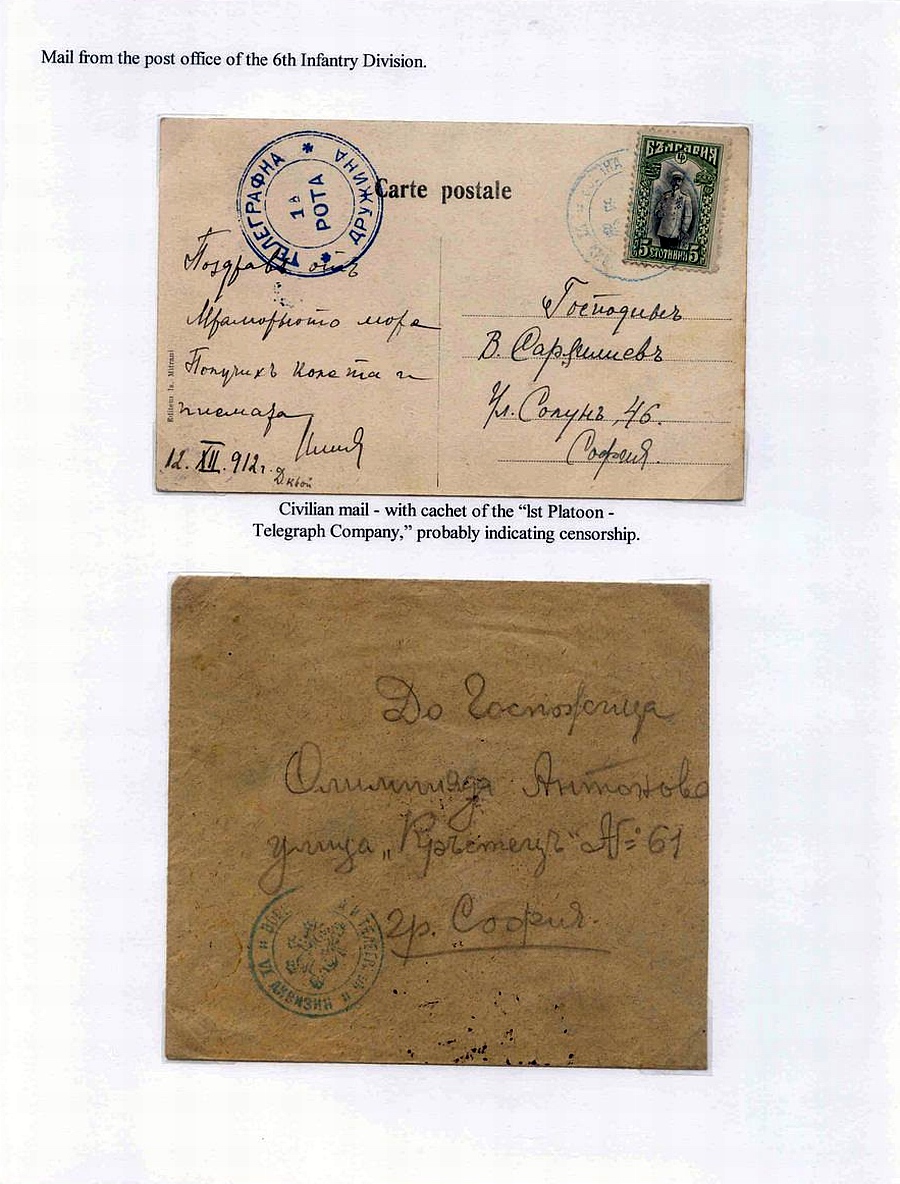 Mail from the post office of the 6th Infantry Division.
ТЕЛЕГРАФНА * ДРУЖИНА *
1а
РОТА
Carte postale
БЪЛГАРИЯ
5 СТОТИНКИ 5
Поздравъ отъ
Мраморното море
Получихъ колета и
писмата
Илия
12. XII. 912 г.
Editeur Is. Mitrani
Господинъ
В.
Ул. Солунъ, 46.
София.
Civilian mail - with cachet of the “lst Platoon -
Telegraph Company,” probably indicating censorship.
До Госпожица
Олимпияда Антонова
улица „Кръстецъ“ №: 61
гр. София.
ТЕЛЕГР.
ТА ДИВИЗИЯ